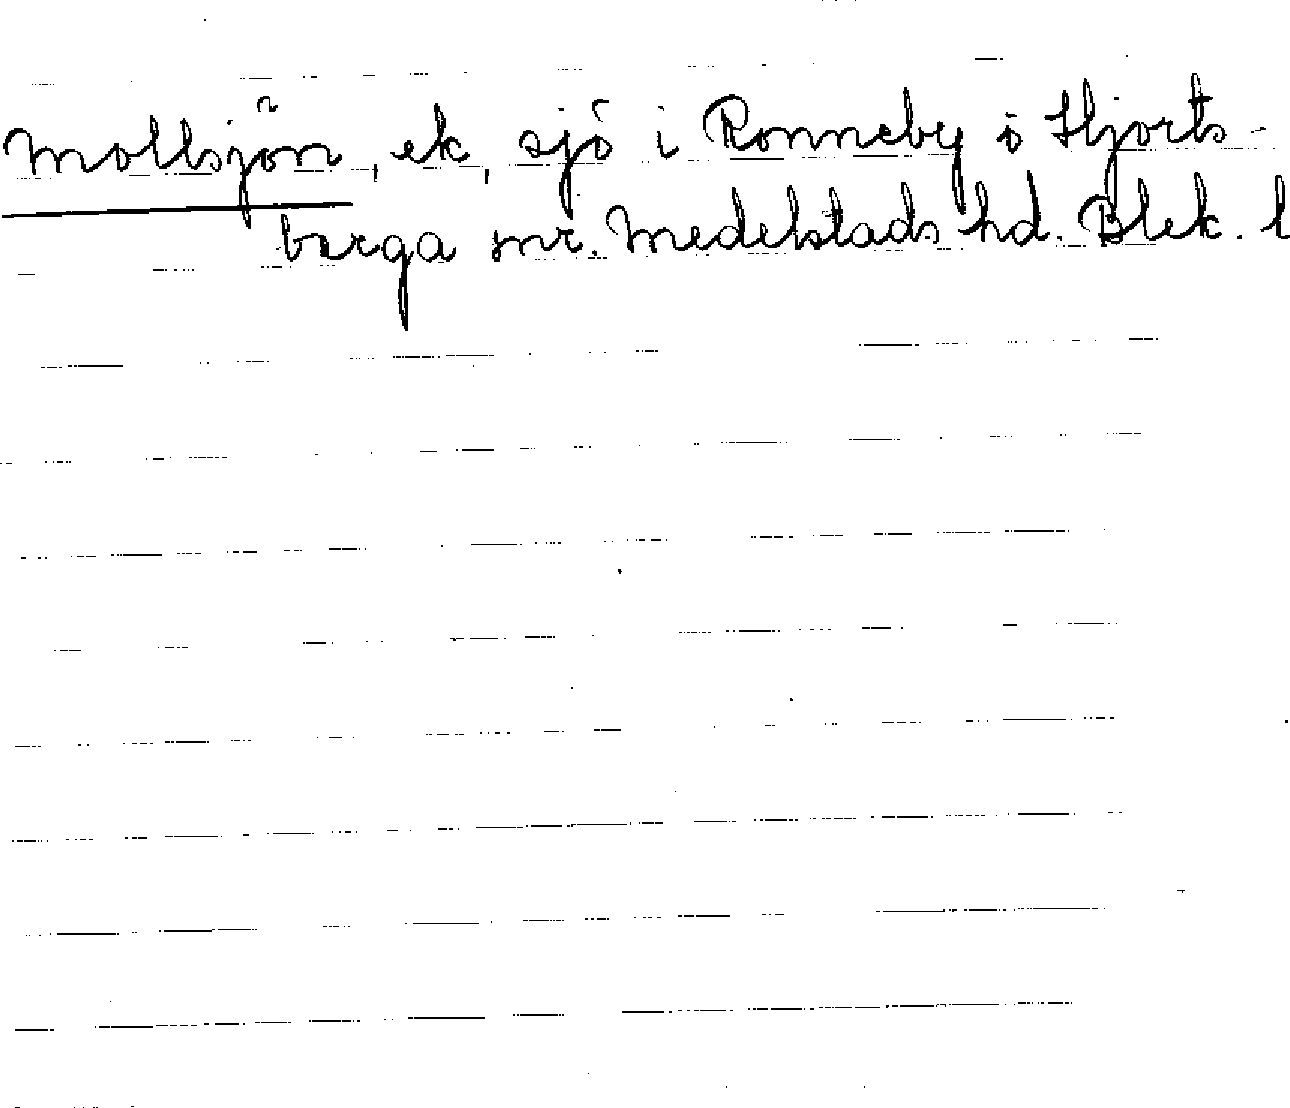 Mollsjön, ek, sjö i Ronneby ö Hjorts-
berga snr. Medelstads hd. Blek. l